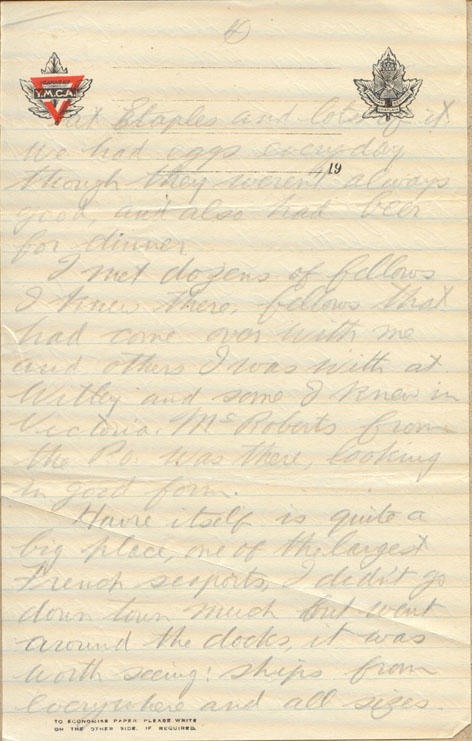 4
CANADIAN
Y.M.C.A.
at Etaples and lots of it
we had eggs everyday
19
though they weren't always
good, and also had beer
for dinner
I met dozens of fellows
I knew there, fellows that
had come over with me
and others I was with at
Witley and some I knew in
Victoria. McRoberts from
the P.O. was there, looking
in good form.
Havre itself is quite a
big place, one of the largest
French seaports, I didn't go
down town much but went
around the docks, it was
worth seeing: ships from
everywhere and all sizes.
TO ECONOMISE PAPER PLEASE WRITE
ON THE OTHER SIDE, IF REQUIRED.